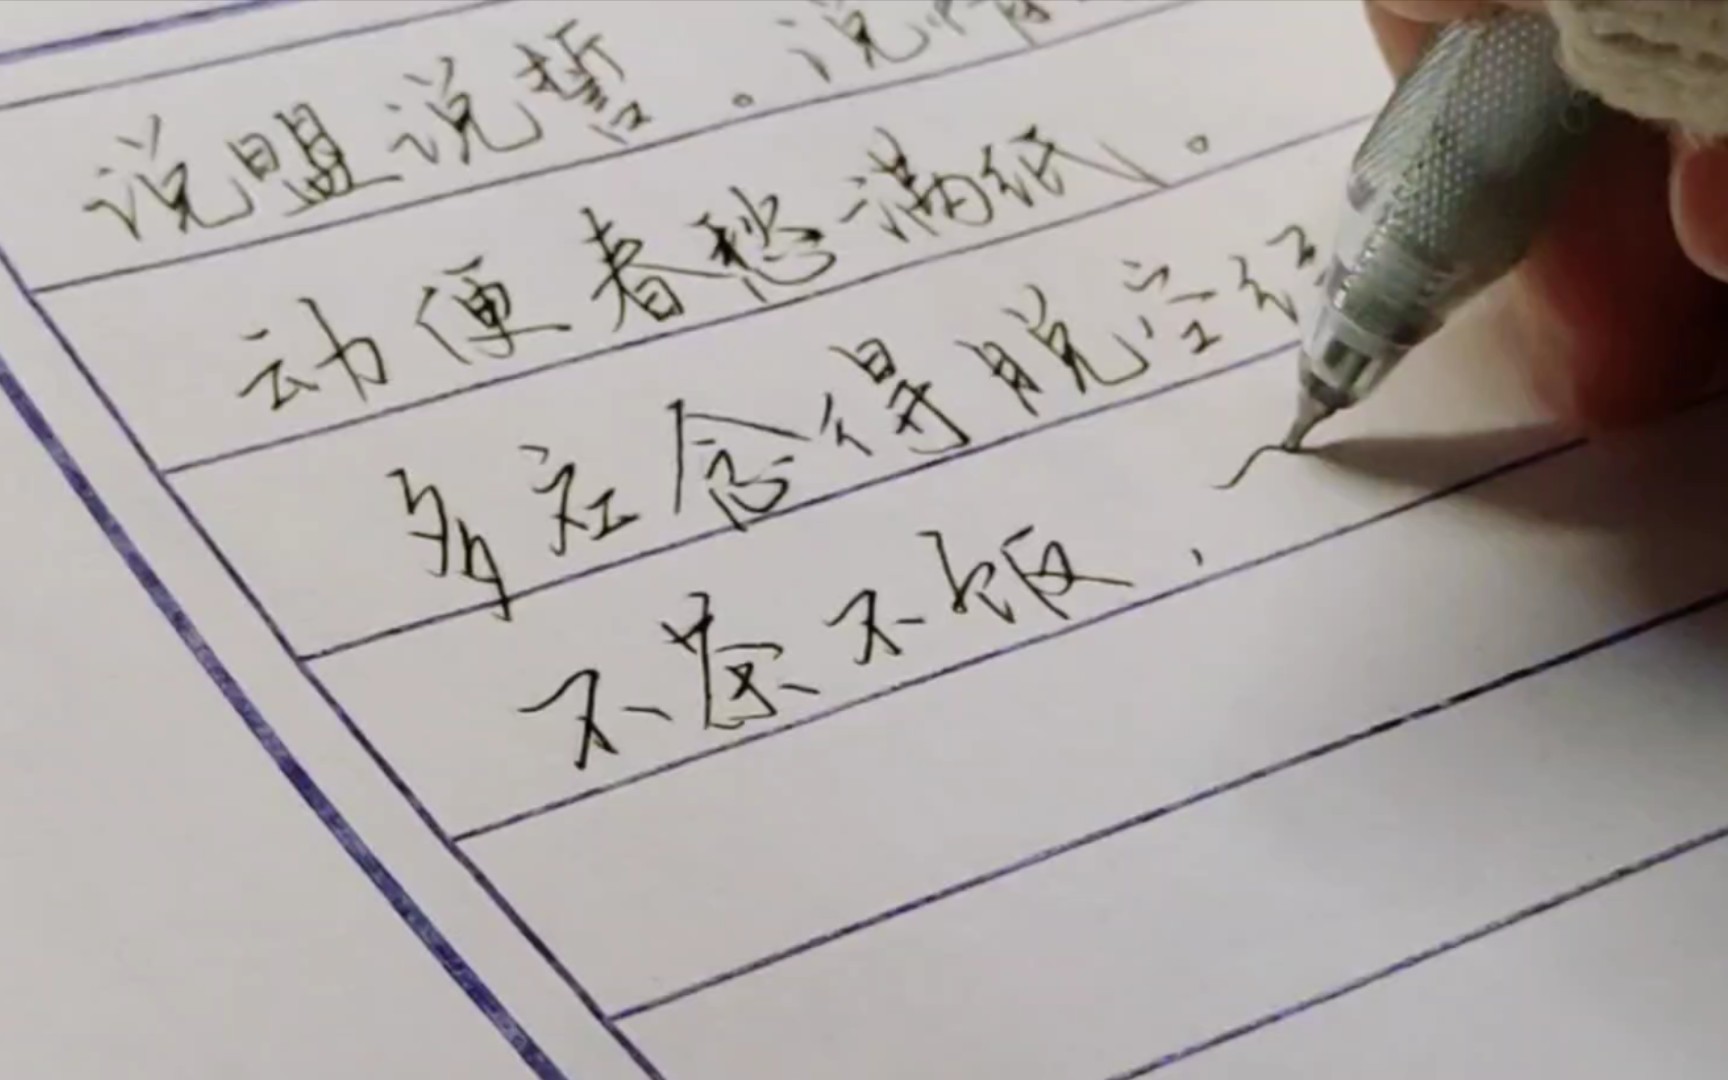 说盟说誓。说情
动便春愁满纸。
多应念得脱空经
不茶不饭,